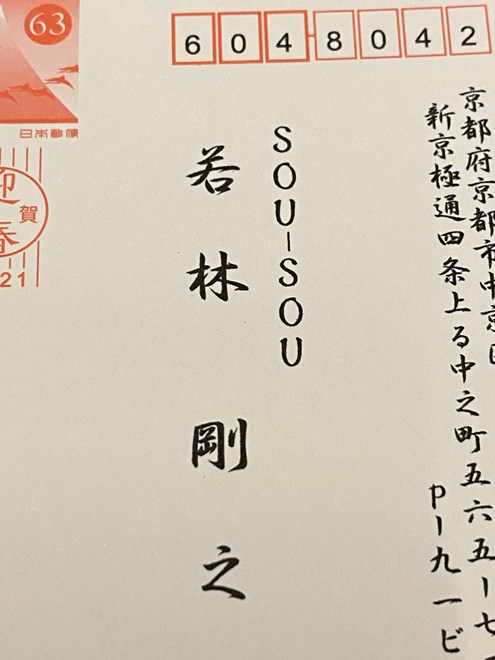 63
日本郵便
迎春
賀
21
6048042
京都府京都市中京区
新京極通四条上る中之町五六五ー七
pー九一ビ
SOU-SOU
若林 剛之